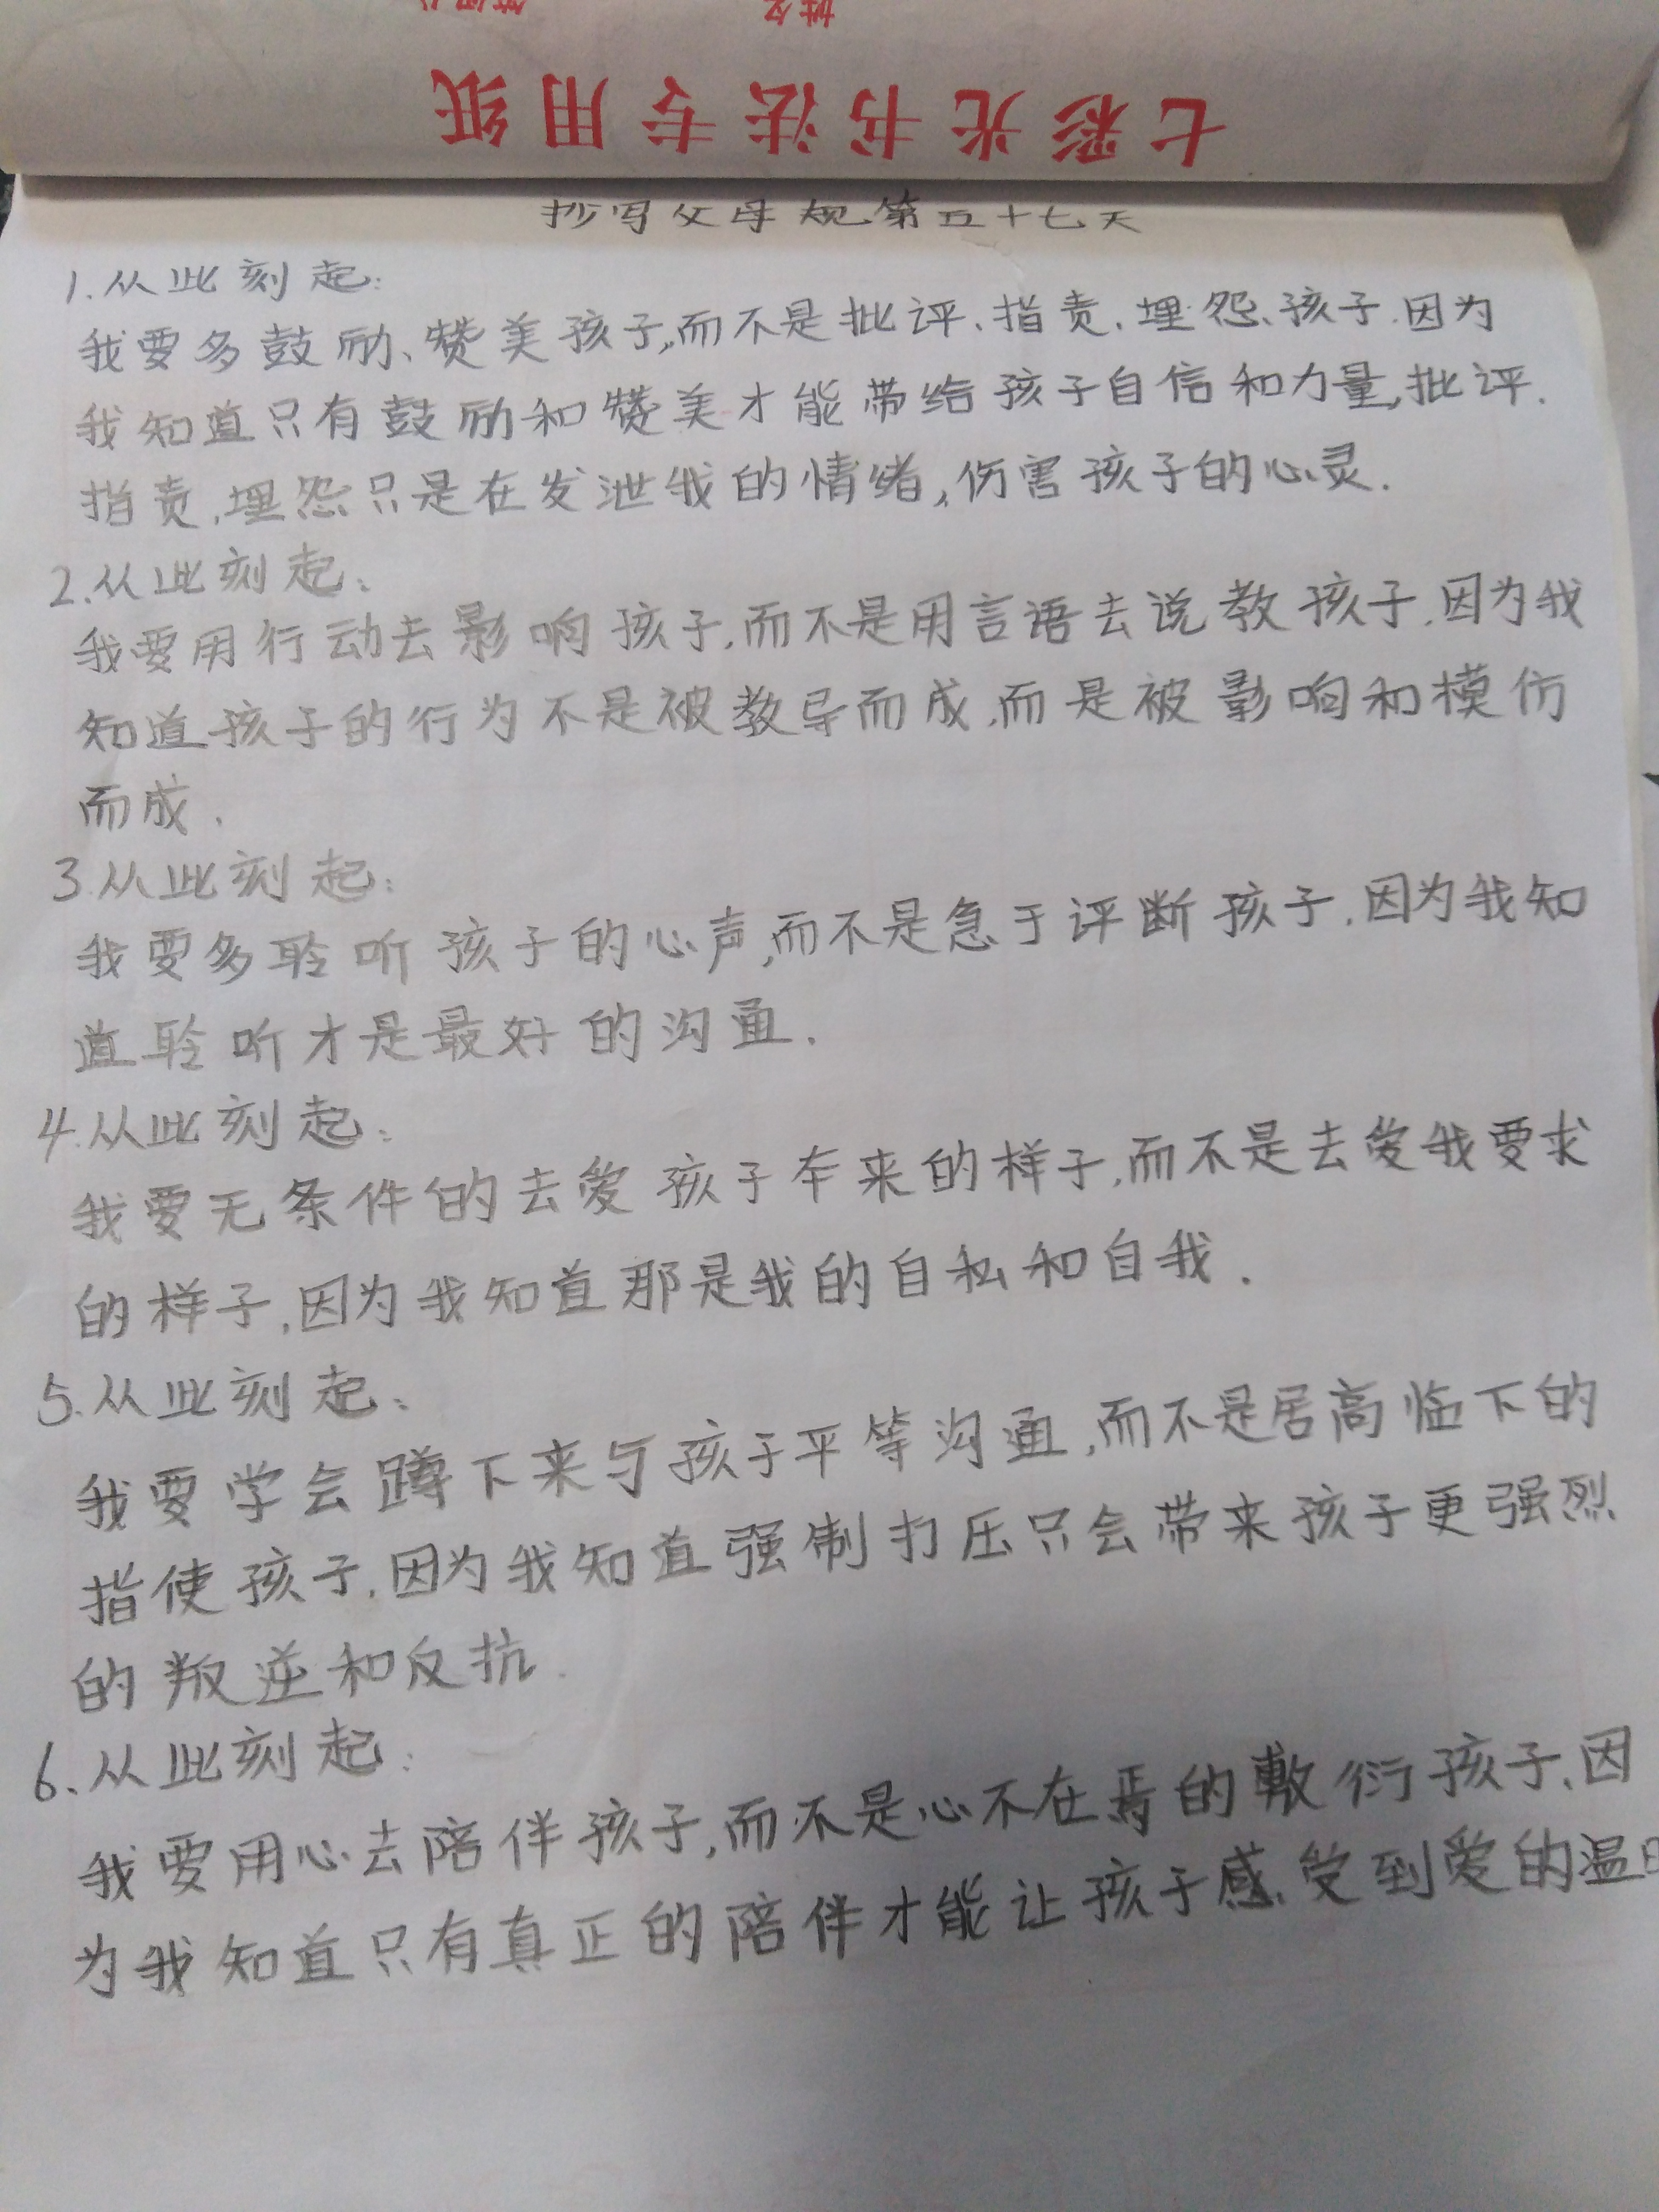 姓名
七彩光书法专用纸
抄写父母规第五十七天
1.从此刻起:
我要多鼓励、赞美孩子,而不是批评、指责、埋怨、孩子.因为
我知道只有鼓励和赞美才能带给孩子自信和力量,批评.
指责,埋怨只是在发泄我的情绪,伤害孩子的心灵.
2.从此刻起:
我要用行动去影响孩子,而不是用言语去说教孩子.因为我
知道孩子的行为不是被教导而成,而是被影响和模仿
而成.
3.从此刻起:
我要多聆听孩子的心声,而不是急于评断孩子.因为我知
道聆听才是最好的沟通.
4.从此刻起:
我要无条件的去爱孩子本来的样子,而不是去爱我要求
的样子,因为我知道那是我的自私和自我.
5.从此刻起:
我要学会蹲下来与孩子平等沟通,而不是居高临下的
指使孩子,因为我知道强制打压只会带来孩子更强烈
的叛逆和反抗.
6.从此刻起:
我要用心去陪伴孩子,而不是心不在焉的敷衍孩子,因
为我知道只有真正的陪伴才能让孩子感受到爱的温